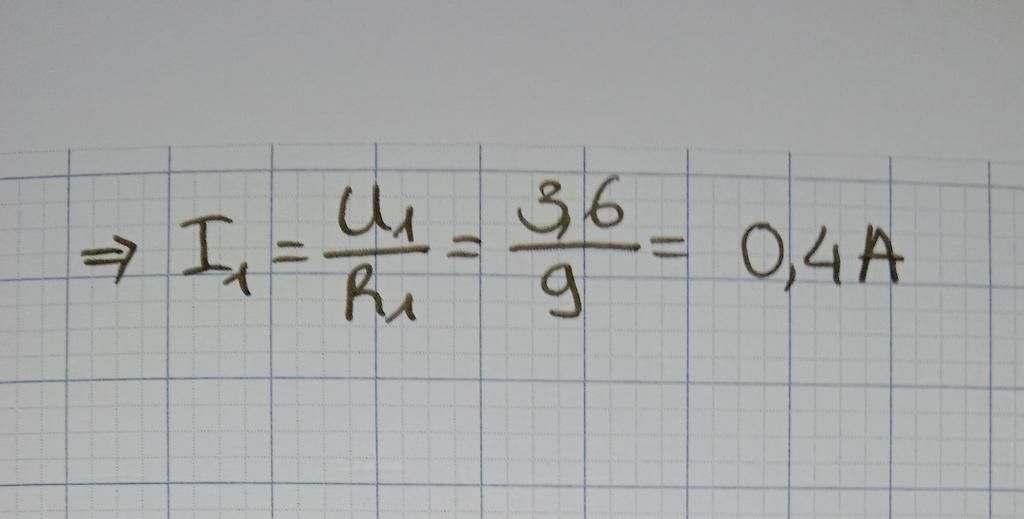 ⇒ I₁ = U₁/R₁ = 3,6/9 = 0,4A